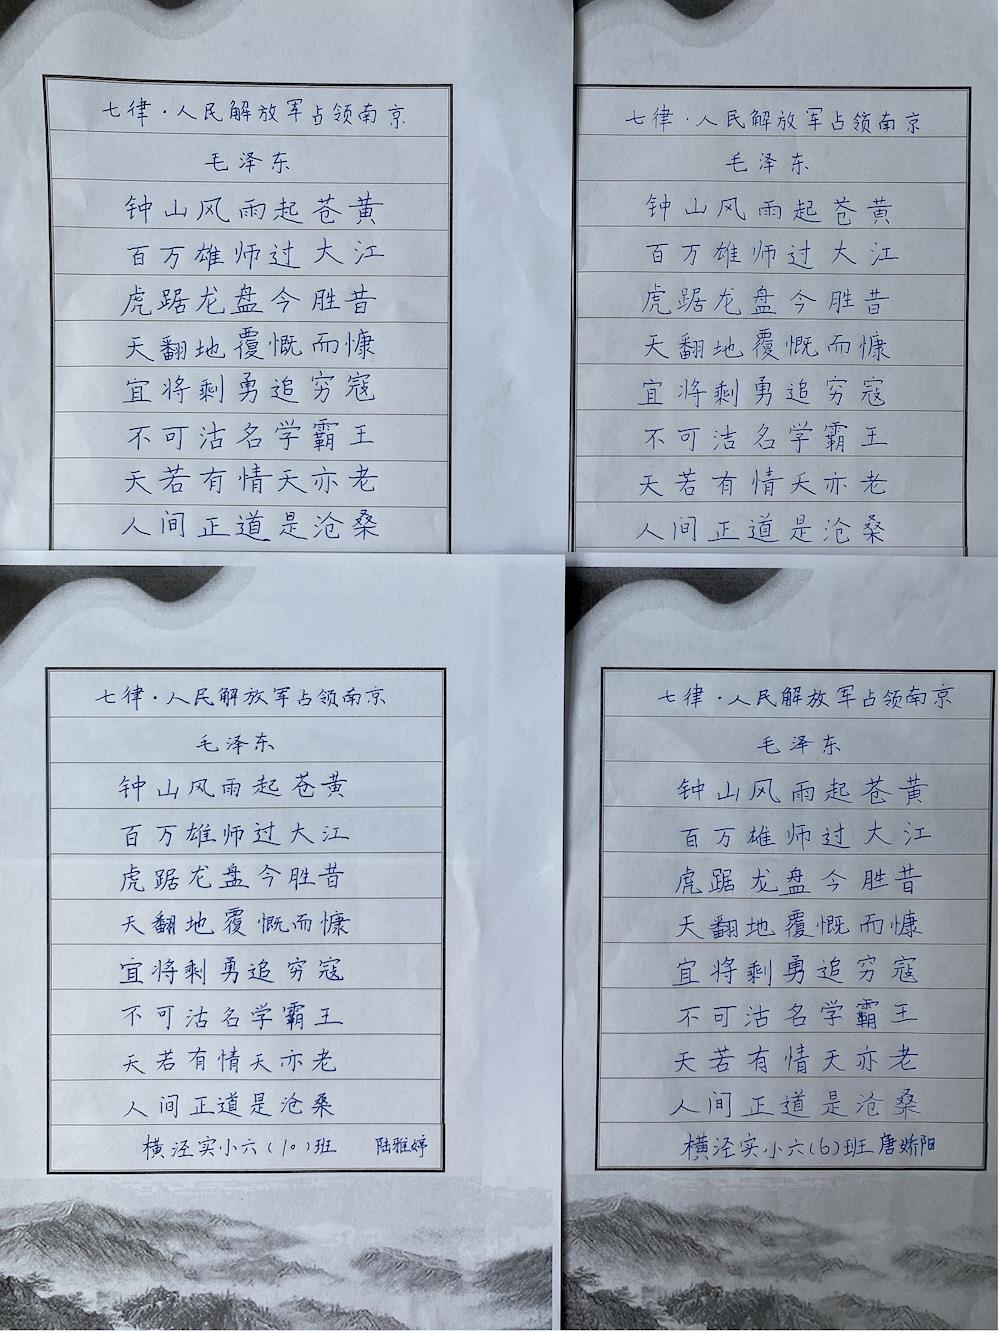 七律·人民解放军占领南京
毛泽东
钟山风雨起苍黄
百万雄师过大江
虎踞龙盘今胜昔
天翻地覆慨而慷
宜将剩勇追穷寇
不可沽名学霸王
天若有情天亦老
人间正道是沧桑
七律·人民解放军占领南京
毛泽东
钟山风雨起苍黄
百万雄师过大江
虎踞龙盘今胜昔
天翻地覆慨而慷
宜将剩勇追穷寇
不可洁名学霸王
天若有情天亦老
人间正道是沧桑
七律·人民解放军占领南京
毛泽东
钟山风雨起苍黄
百万雄师过大江
虎踞龙盘今胜昔
天翻地覆慨而慷
宜将剩勇追穷寇
不可沽名学霸王
天若有情天亦老
人间正道是沧桑
横泾实小六(10)班 陆雅婷
七律·人民解放军占领南京
毛泽东
钟山风雨起苍黄
百万雄师过大江
虎踞龙盘今胜昔
天翻地覆慨而慷
宜将剩勇追穷寇
不可沽名学霸王
天若有情天亦老
人间正道是沧桑
横泾实小六(6)班 唐娇阳